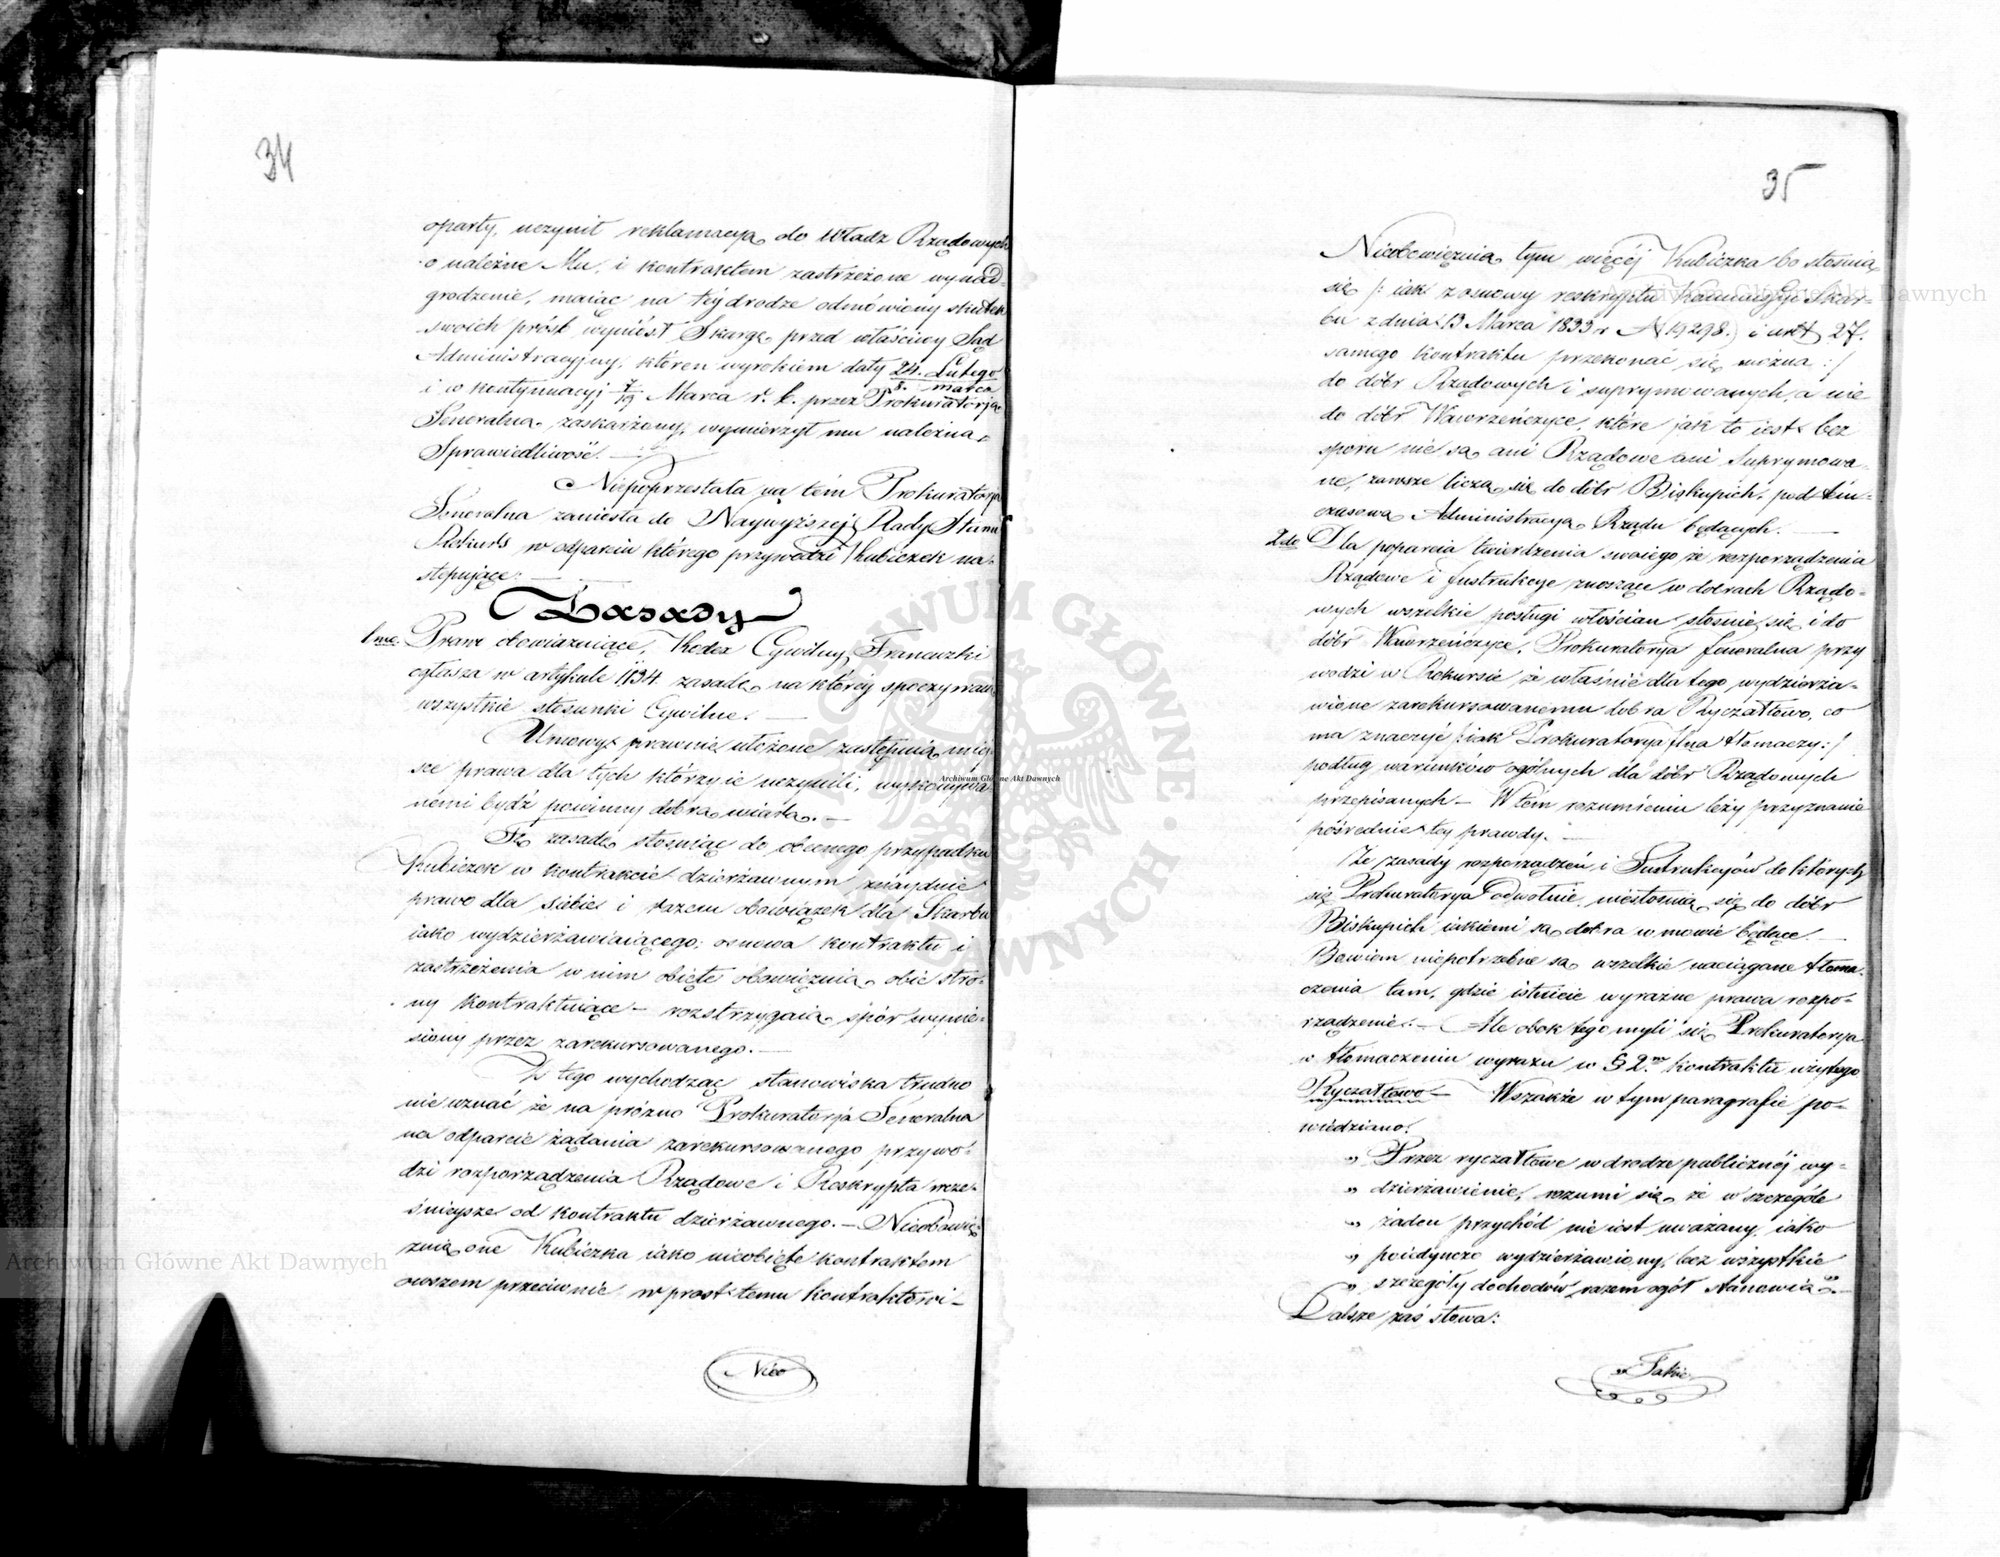 34
oparty, uczynił reklamacyą do Władz Rządowych
o należne Mu, i kontraktem zastrzeżone wyna-
grodzenie, maiąc na téy drodze odmówiony skutek
swoich próśb wyniósł Skargę przed właściwy Sąd
Administracyjny, któren wyrokiem daty 24. Lutego
i w kontynuacyj 7/19 Marca r. b. przez Prokuratorją
8. marca
Generalną zaskarżony, wymierzył mu należną
Sprawiedliwość. —
Niepoprzestała na tém Prokuratorja
Generalna zaniosła do Naywyższej Rady Stanu
Rekurs w odparciu którego przywodzi Kubiczek na-
stępujące: —
Zasady
1me. Prawo obowiązujące, Kodex Cywilny Francuzki
ogłasza w artykule 1134 zasadę na któréj spoczywaią
wszystkie stosunki Cywilne. —
Umowy prawnie ułożone zastępuią miey-
sce prawa dla tych którzy ie uczynili, wykonywa-
nemi bydź powinny dobrą wiarą. —
Tę zasadę stosuiąc do obecnego przypadku
Kubiczek w kontrakcie dzierżawnym znayduie
prawo dla siebie i razem obowiązek dla Skarbu
iako wydzierżawiaiącego; osnowa kontraktu i
zastrzeżenia w nim obięte obowięzuią obie stro-
ny kontraktuiące — rozstrzygaią spór wynie-
siony przez zarekursowanego. —
Z tego wychodząc stanowiska trudno
nie uznać że na próżno Prokuratorja Generalna
na odparcie żądania zarekursowanego przywo-
dzi rozporządzenia Rządowe i Reskrypta wcze-
śnieysze od kontraktu dzierżawnego. — Nieobowię-
zuią one Kubiczka iako nieobięte kontraktem
owszem przeciwnie wprost temu kontraktowi —
Nieo
35
Nieobowięzuią tym więcéj Kubiczka bo stosuią
się /: iak z osnowy reskryptu Kommissyi Skar-
bu z dnia 13 Marca 1833 r N 19298. i art 27.
samego kontraktu przekonać się można :/
do dóbr Rządowych i suprymowanych, a nie
do dóbr Wawrzeńczyce, które jak to iest bez
sporu nie są ani Rządowe ani Suprymowa-
ne, zawsze liczą się do dóbr Biskupich, pod tém-
czasową Administracyą Rządu będących. —
2do Dla poparcia twierdzenia swoiego że rozporządzenia
Rządowe i Instrukcye znoszące w dobrach Rządo-
wych wszelkie posługi włościan stosuie się i do
dóbr Wawrzeńczyce, Prokuratorya Generalna przy
wodzi w Rekursie że właśnie dla tego wydzierża-
wione zarekursowanemu dobra Ryczałtowo, co
ma znaczyć /:iak Prokuratorya Glna tłomaczy:/
podług warunków ogólnych dla dóbr Rządowych
przepisanych — W tém rozumieniu leży przyznanie
pośrednie téy prawdy. —
Że zasady rozporządzeń i Instrukcyów do których
się Prokuratorya odwołuie, niestosuią się do dóbr
Biskupich iakiemi są dobra w mowie będące. —
Bowiem niepotrzebne są wszelkie naciągane tłoma-
czenia tam, gdzie istnieie wyraźne prawa rozpo-
rządzenie. — Ale obok tego myli się Prokuratorya
w tłomaczeniu wyrazu w § 2m kontraktu użytego
Ryczałtowo — Wszakże w tym paragrafie po-
wiedziano:
„ Przez ryczałtowe w drodze publicznéj wy-
„ dzierżawienie, rozumi się, że w szczególe
„ żaden przychód nie iest uważany, iako
„ poiedynczo wydzierżawiony, lecz wszystkie
„ szczegóły dochodów razem ogół stanowią „ —
Dalsze zaś słowa:
„ Takie